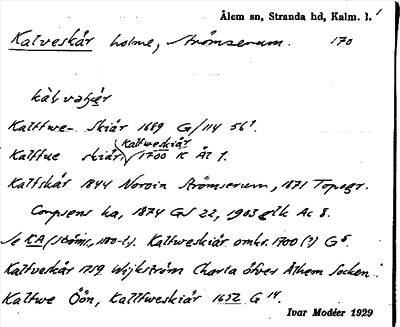 Ålem sn, Stranda hd, Kalm. l.
Kalveskär holme, Strömserum. 170
Kalffwe- Skiär 1689 G/114 56
Kalfweskiär
Kalffue skiär, 1700 K Ät 1.
Kalfskär 1844 Noroin Strömserum, 1871 Topogr.
Corpsens ka, 1874 GS 22, 1903 elk Ac 8.
Se KA Kalfweskiär omkr. 1700 (?) G
Kalfveskär 1759 Wijkström Charta öfver Ålhem Socken
Kalfwe Öön, Kalffweskiär 1652 G 14.
Ivar Modéer 1929